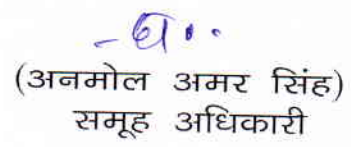 (अनमोल अमर सिंह)
समूह अधिकारी